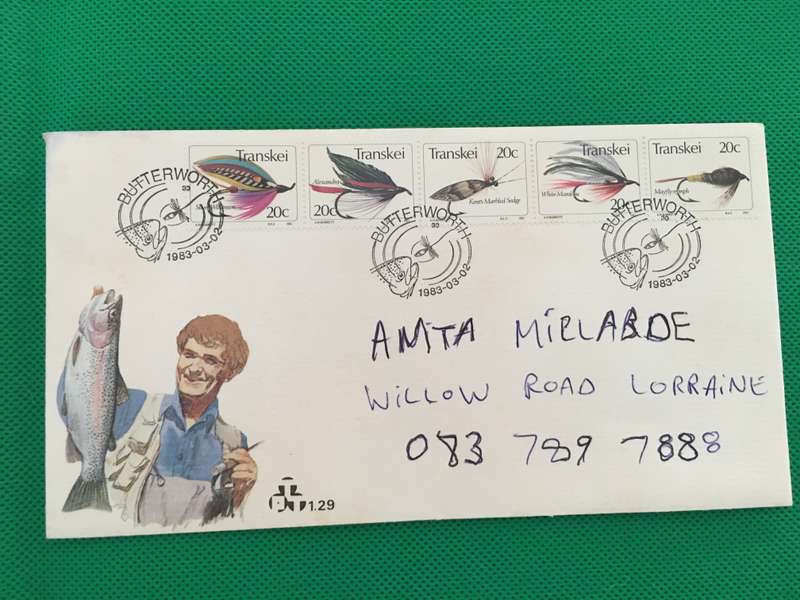 Transkei 20c
Transkei Alexandra 20c
Transkei 20c Kent's Marbled Sedge
Transkei White Marabou 20c
Transkei 20c Mayfly-nymph
BUTTERWORTH
1983-03-02
BUTTERWORTH
1983-03-02
BUTTERWORTH
1983-03-02
AMITA MIRLABDE
WILLOW ROAD LORRAINE
083 789 7888
1.29